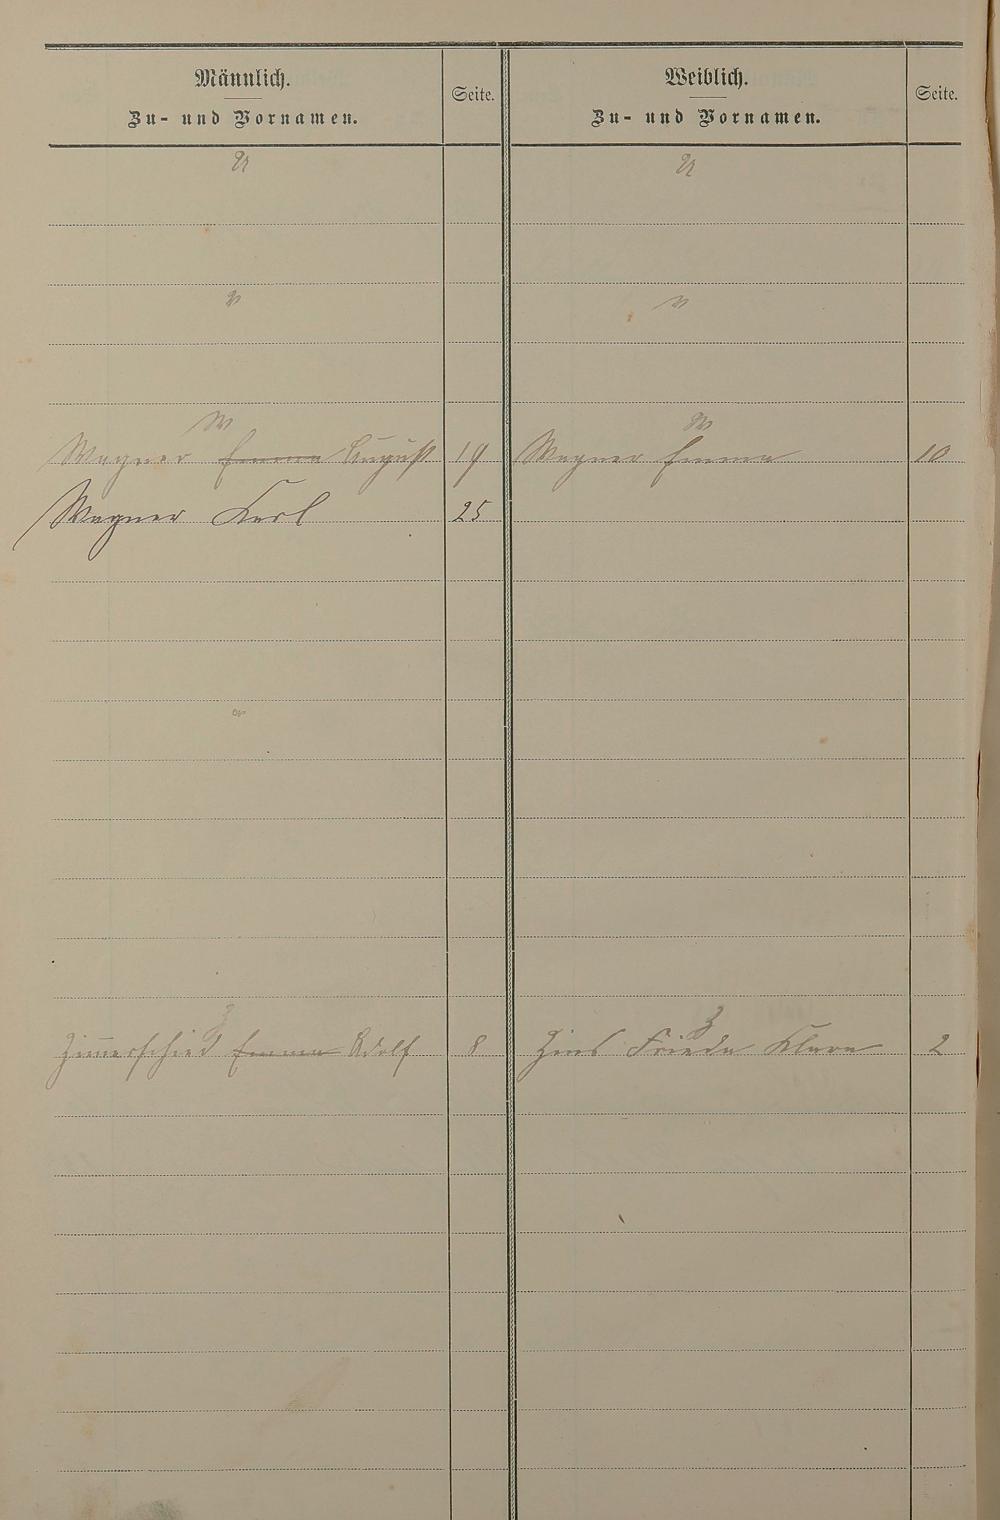 Männlich.
Zu- und Vornamen.
Seite.
Weiblich.
Zu- und Vornamen.
Seite.
U
U
V
V
W
W
Wagner Emma August 19
Wagner Emma 10
Wagner Karl 25
Z
Z
Zimerschied Emma Adolf 8
Zins Frieda Klara 2